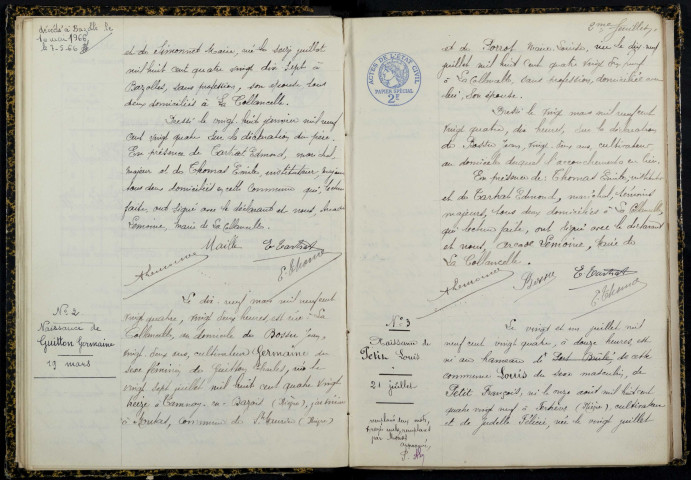 décédé à Bazolles le
et de Simonnet Marie, née le seize juillet
mil huit cent quatre vingt dix sept à
Bazolles, sans profession, son épouse tous
deux domiciliés à La Collancelle.
Dressé le vingt huit janvier mil neuf
cent vingt quatre sur la déclaration du père.
En présence de Tartrat Edmond, maréchal,
majeur et de Thomas Emile, instituteur, majeur
tous deux domiciliés en cette commune qui, lecture
faite, ont signé avec le déclarant et nous,
Lemoine, Maire de La Collancelle.
Maille E Tartrat
A Lemoine E Thomas
N° 2
Naissance de
Guitton Germaine
19 mars
Le dix neuf mars mil neuf cent
vingt quatre, vingt deux heures, est née à La
Collancelle, au domicile de Bossu Jean,
vingt deux ans, cultivateur Germaine du
sexe féminin de Guitton Charles, né le
vingt sept juillet mil huit cent quatre vingt
treize à Tannay en Bazois (Nièvre),
commune de St Maurice (Nièvre)
2me feuillet.
ACTES DE L'ETAT CIVIL
PAPIER SPECIAL
2F
et de Marie Louise, née le dix neuf
juillet mil huit cent quatre vingt dix neuf
à La Collancelle, sans profession, domiciliée avec
lui, son épouse.
Dressé le vingt mars mil neuf cent
vingt quatre, dix heures, sur la déclaration
de Bossu Jean, vingt deux ans, cultivateur
au domicile duquel l'accouchement a eu lieu.
En présence de Thomas Emile, instituteur
et de Tartrat Edmond, maréchal, témoins
majeurs, tous deux domiciliés à La Collancelle
qui lecture faite, ont signé avec le déclarant
et nous, Lemoine, Maire de
La Collancelle.
A Lemoine Bossu E Tartrat
E Thomas
N° 3
Naissance de
Petit Louis
21 juillet
Le vingt et un juillet mil
neuf cent vingt quatre, à douze heures, est
né au hameau de Port Brûlé de cette
commune Louis du sexe masculin, de
Petit François, né le onze août mil huit cent
quatre vingt neuf à (Nièvre), cultivateur
et de Félicie, née le vingt juillet